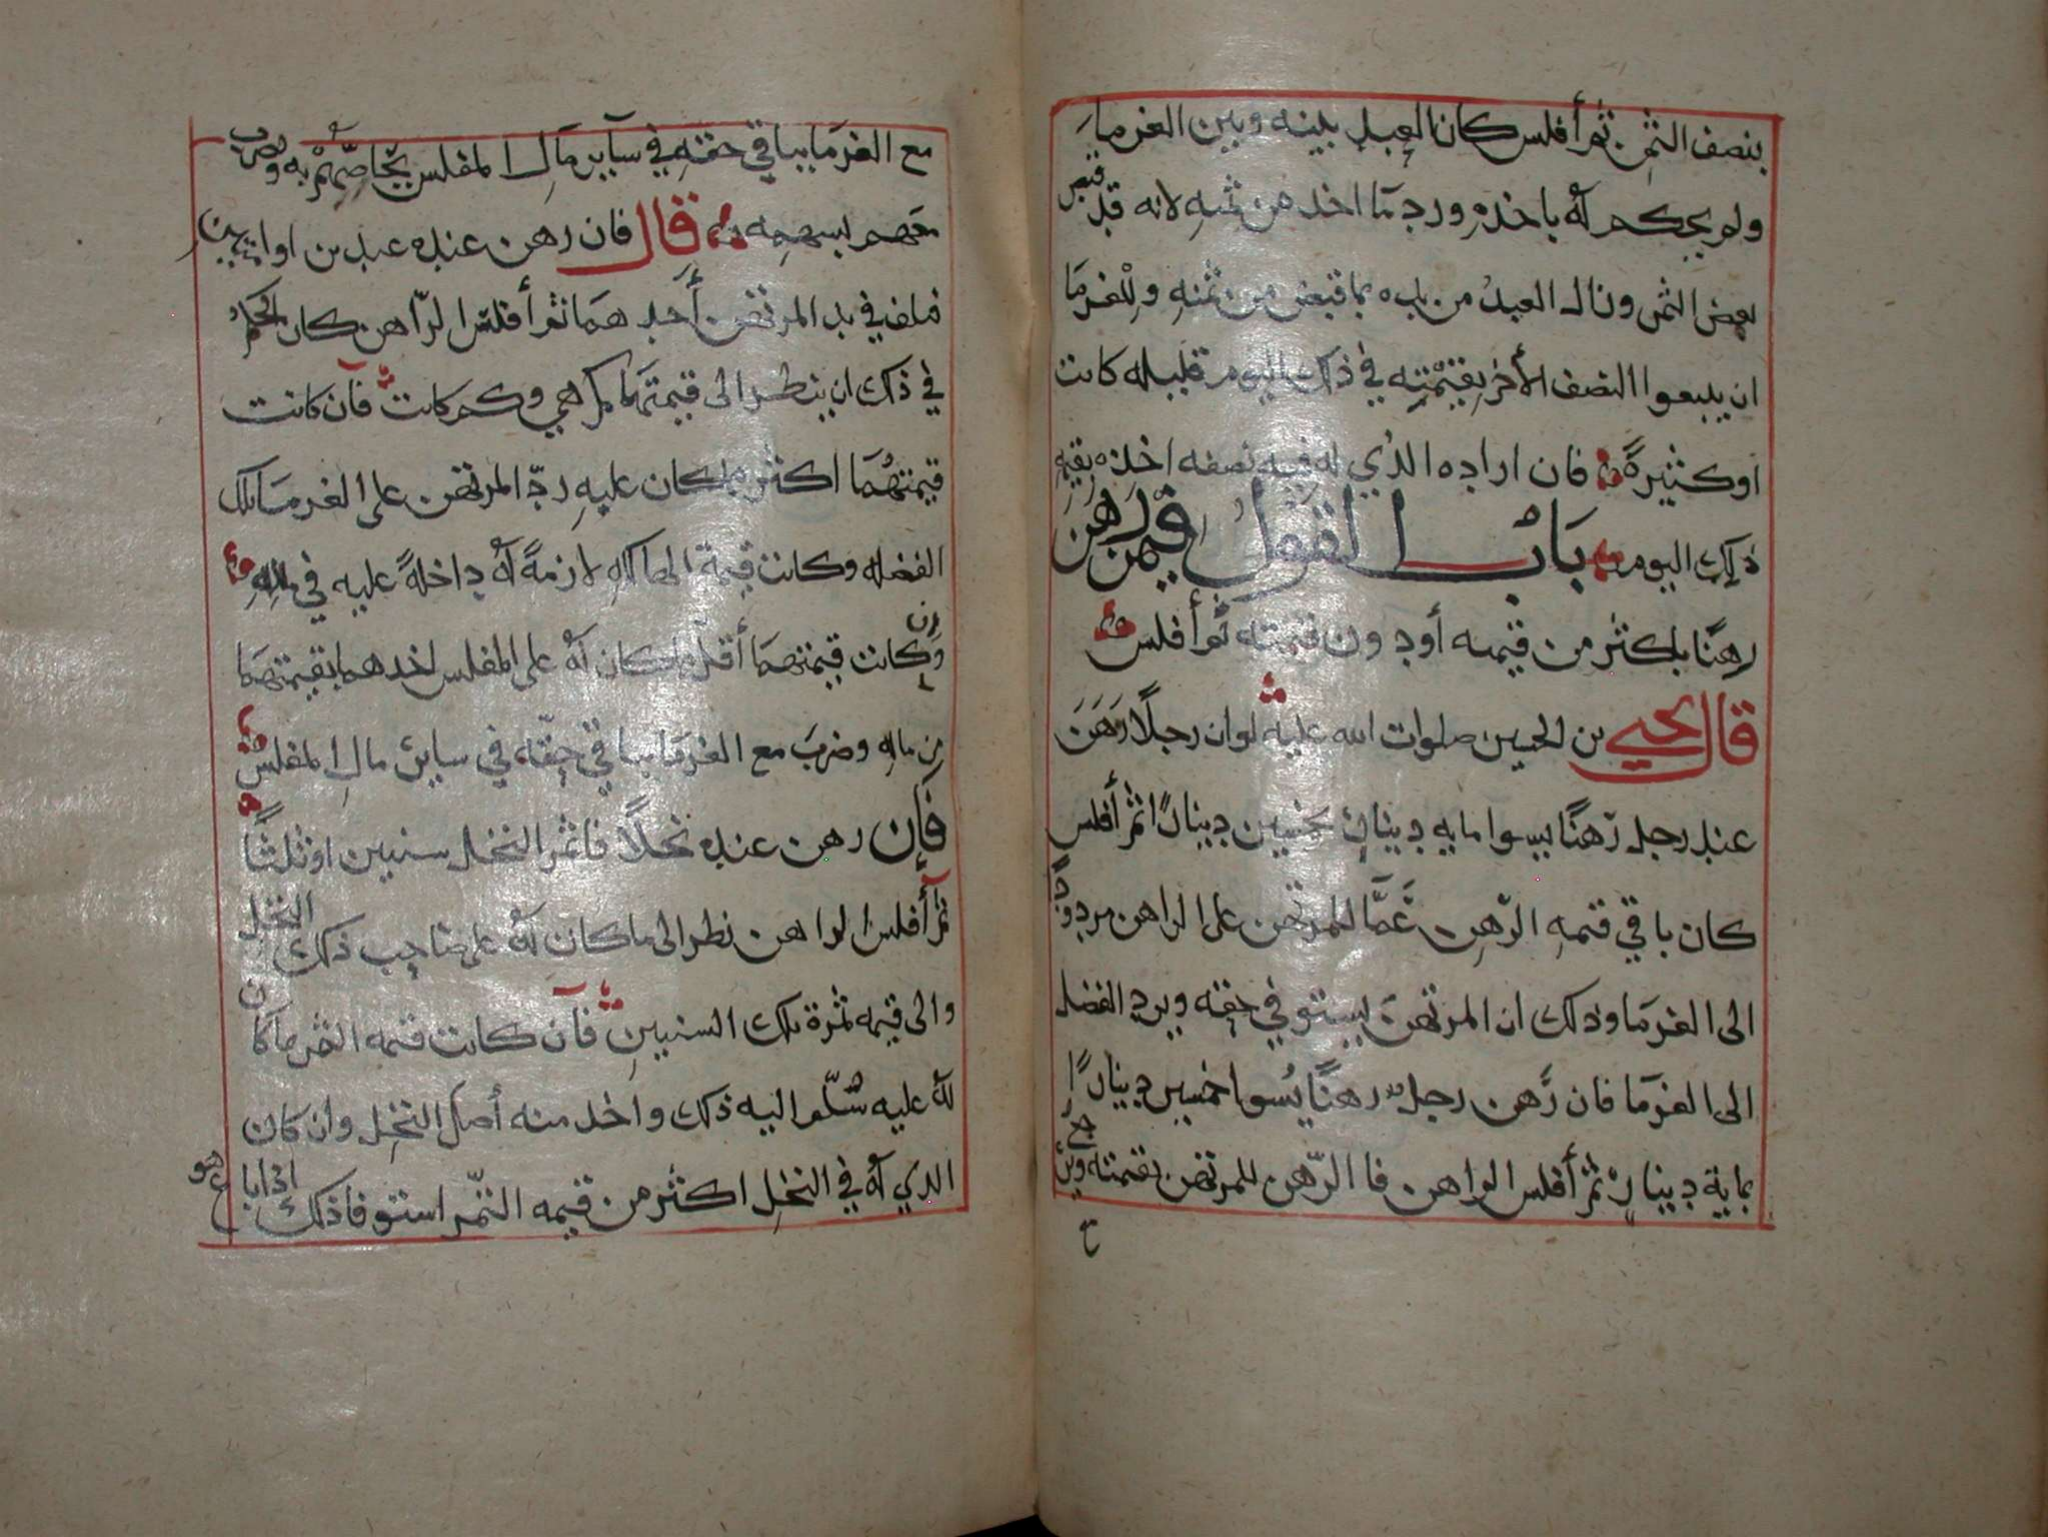 بنصف الثمن ثم أفلس كان العبد بينه وبين الغرما
ولم يحكم له باخذه ورد ما اخذ من ثمنه لانه قد قبض
بعض الثمن وزال العبد من يده بما قبض من ثمنه وللغرما
ان يبيعوا النصف الأخر بقيمته في ذلك اليوم قليله كانت
او كثيرة فان اراده الذي له فيه نصفه اخذه بقيمه
ذلك اليوم باب القول فيمن رهن
رهنًا بأكثر من قيمته أو دون قيمته ثم أفلس
قال يحيى بن الحسين صلوات الله عليه لو ان رجلًا رَهَنَ
عند رجل رهنًا يسوا مايه دينار بخمسين دينارًا ثم أفلس
كان باقي قيمه الرّهن عمّا للمرتهن على الراهن مردودًا
الى الغرما وذلك ان المرتهن يستوفي حقه ويرد الفضل
الى الغرما فان رَهن رجل رهنًا يُسوا خمسين دينارًا
بماية دينارٍ ثم أفلس الراهن فا الرّهن للمرتهن بقيمته ويرجع
مع الغرما بباقي حقه في ساير مال المفلس يحاصّهم به ويضرب
معهم بسهمه قال فان رهن عنده عبدين او ابيتين
فتلف في يد المرتهن أحدهما ثم أفلس الرّاهن كان الحكم
في ذلك ان ينظر الى قيمتهما كم هي وكم كانت فان كانت
قيمتهُما اكثر مما كان عليه ردّ المرتهن على الغرما تلك
الفضله وكانت قيمة الهالكه لازمةً له داخلةً عليه في ماله
وإن كانت قيمتهما أقل مما كان له على المفلس اخدهما بقيمتهما
من ماله وضربَ مع الغرما بباقي حقّه في سايرِ مالِ المفلس
فإن رهن عنده نخلًا فاثمر النخل سنين اوثلثًا
ثم أفلس الراهن نظر الى ما كان له على صاحب ذلك النخل
والى قيمه ثمرة تلك السنين فان كانت قيمه الثمر ما كان
له عليه سُلّم اليه ذلك واخد منه أصل النخل وان كان
الذي له في النخل اكثر من قيمه الثمر استوفا ذلك